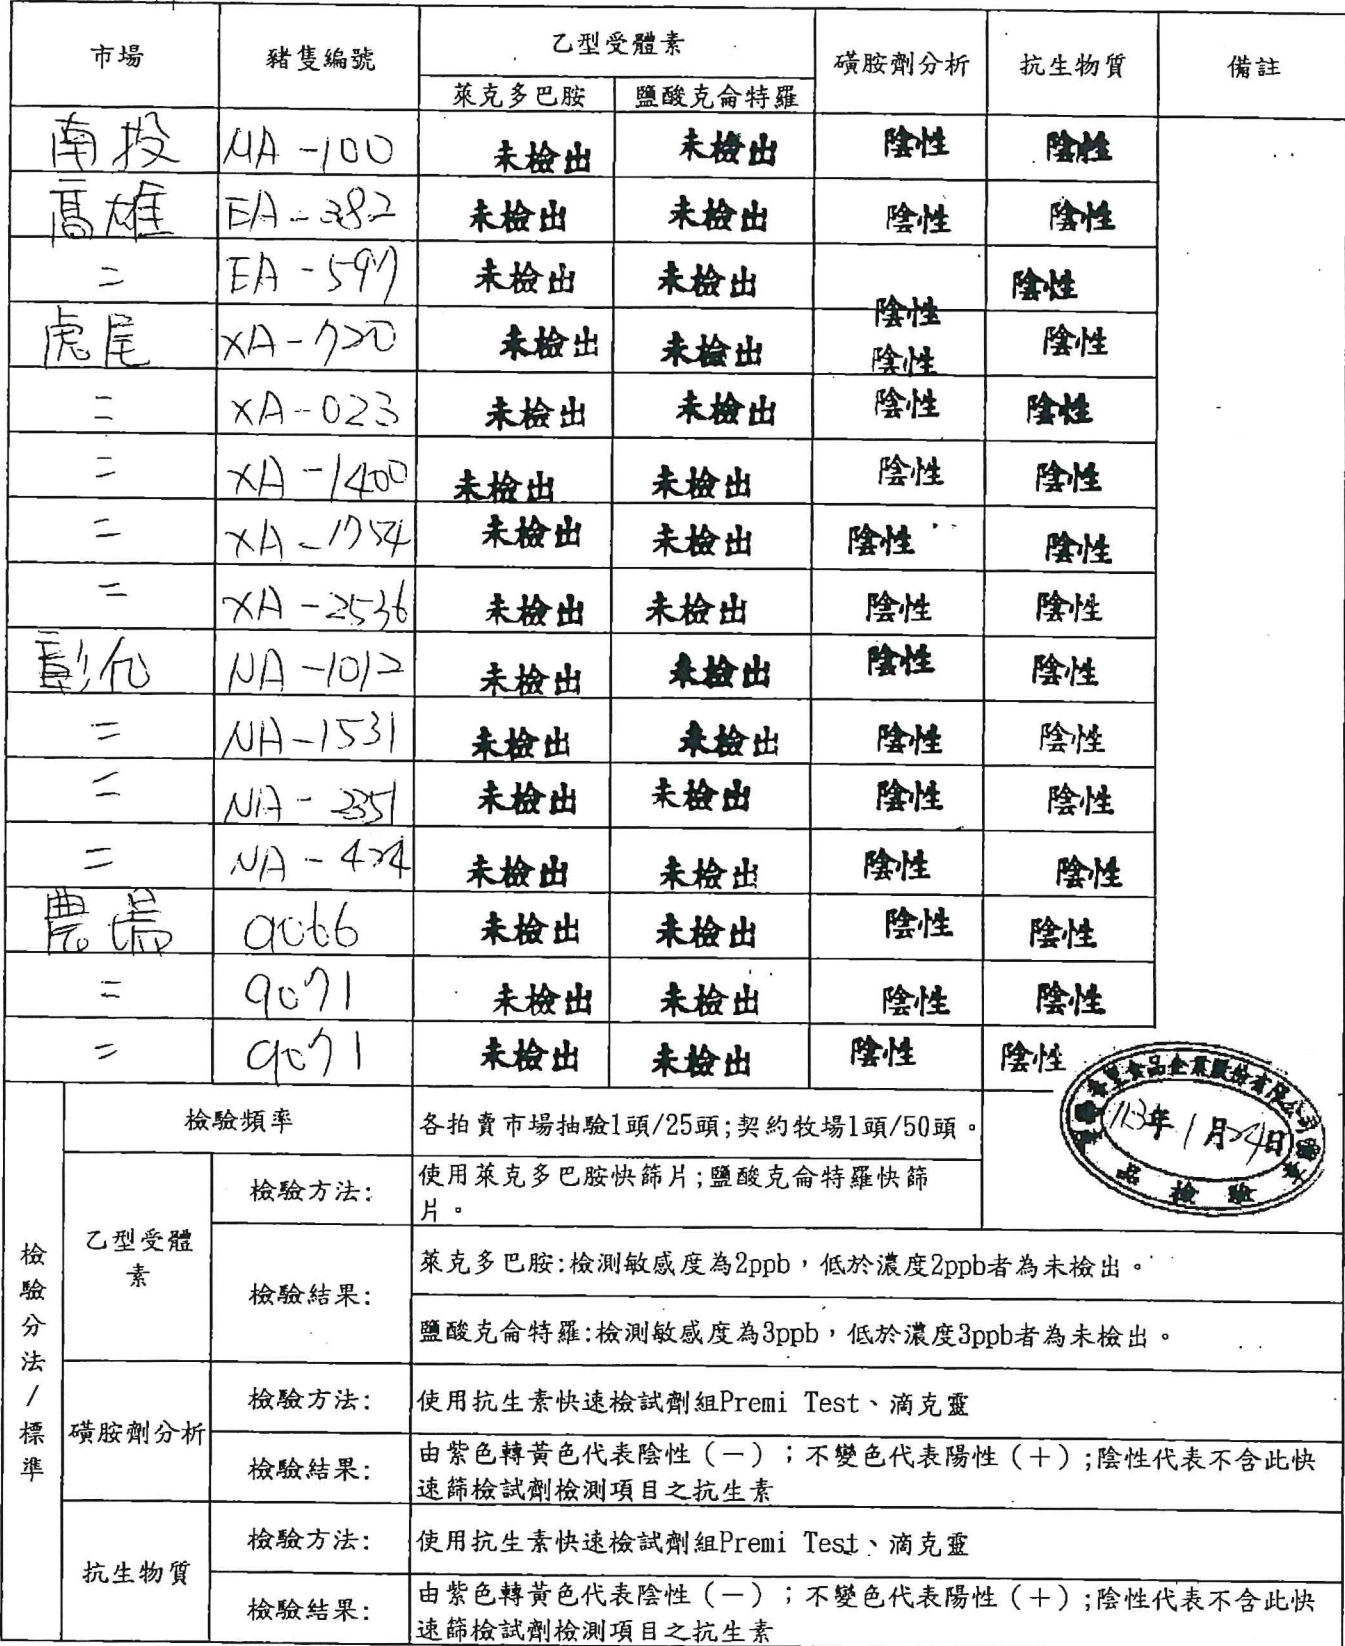 市場 豬隻編號 乙型受體素 磺胺劑分析 抗生物質 備註
萊克多巴胺 鹽酸克侖特羅
南投 MA-100 未檢出 未檢出 陰性 陰性
高雄 EA-382 未檢出 未檢出 陰性 陰性
= EA-597 未檢出 未檢出 陰性 陰性
虎尾 XA-720 未檢出 未檢出 陰性 陰性
= XA-023 未檢出 未檢出 陰性 陰性
= XA-1400 未檢出 未檢出 陰性 陰性
= XA-1754 未檢出 未檢出 陰性 陰性
= XA-2536 未檢出 未檢出 陰性 陰性
彰化 NA-1012 未檢出 未檢出 陰性 陰性
= NA-1531 未檢出 未檢出 陰性 陰性
= NA-2351 未檢出 未檢出 陰性 陰性
= NA-424 未檢出 未檢出 陰性 陰性
農場 9066 未檢出 未檢出 陰性 陰性
= 9071 未檢出 未檢出 陰性 陰性
= 9071 未檢出 未檢出 陰性 陰性
食品企業股份有限公司
113年1月24日
品檢驗
檢驗分法/標準
檢驗頻率 各拍賣市場抽驗1頭/25頭;契約牧場1頭/50頭。
乙型受體素
檢驗方法: 使用萊克多巴胺快篩片;鹽酸克侖特羅快篩
片。
檢驗結果: 萊克多巴胺:檢測敏感度為2ppb，低於濃度2ppb者為未檢出。
鹽酸克侖特羅:檢測敏感度為3ppb，低於濃度3ppb者為未檢出。
磺胺劑分析
檢驗方法: 使用抗生素快速檢試劑組Premi Test、滴克靈
檢驗結果: 由紫色轉黃色代表陰性（－）；不變色代表陽性（＋）;陰性代表不含此快
速篩檢試劑檢測項目之抗生素
抗生物質
檢驗方法: 使用抗生素快速檢試劑組Premi Test、滴克靈
檢驗結果: 由紫色轉黃色代表陰性（－）；不變色代表陽性（＋）;陰性代表不含此快
速篩檢試劑檢測項目之抗生素